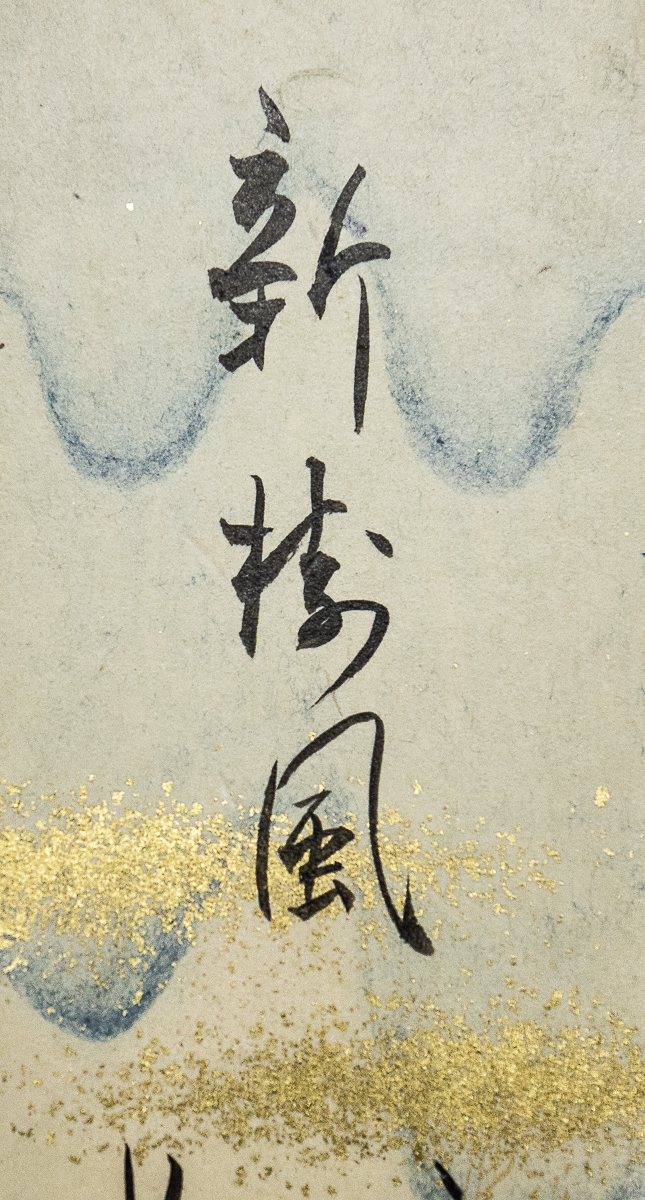 新樹風